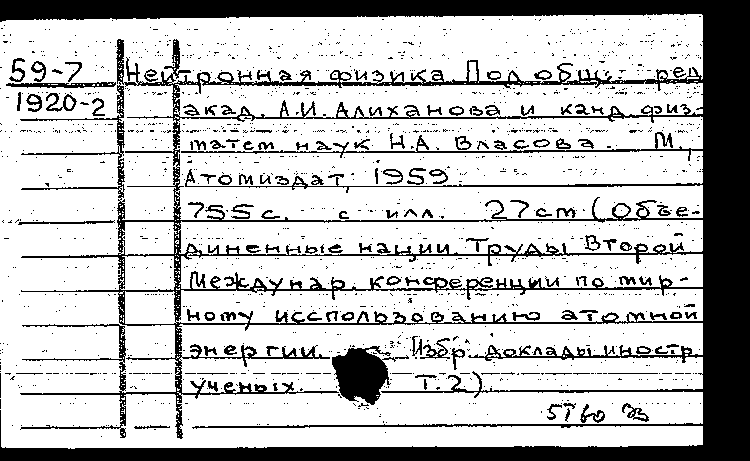 59-7 Нейтронная физика. Под общ. ред
1920-2 акад. А.И. Алиханова и канд. физ-
матем. наук Н.А. Власова. М.,
Атомиздат, 1959.
755 с. с илл. 27 см (Объе-
диненные нации. Труды Второй
Междунар. конференции по мир-
ному исспользованию атомной
энергии. Избр. доклады иностр.
ученых. Т. 2).